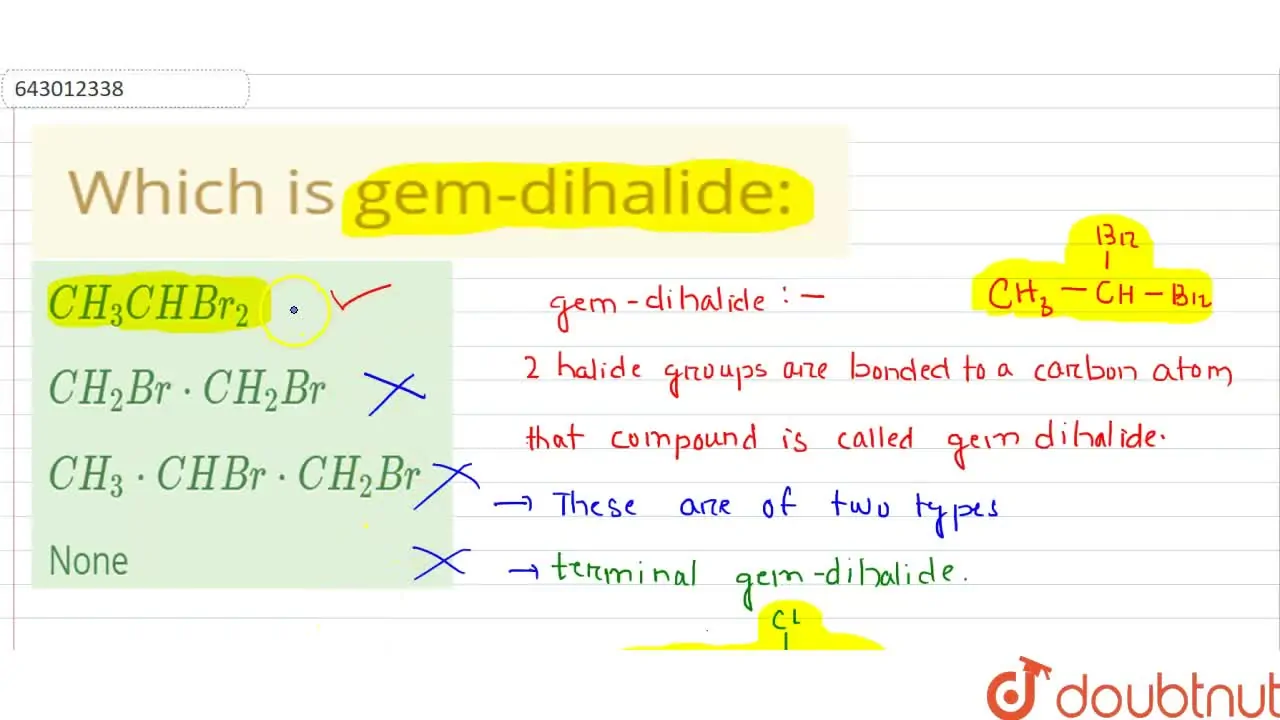 643012338
Which is gem-dihalide:
CH₃CHBr₂
CH₂Br · CH₂Br
CH₃ · CHBr · CH₂Br
None
Br
CH₃ — CH — Br
gem-dihalide : —
2 halide groups are bonded to a carbon atom
that compound is called gem dihalide.
→ These are of two types
→ terminal gem-dihalide.
Cl
doubtnut